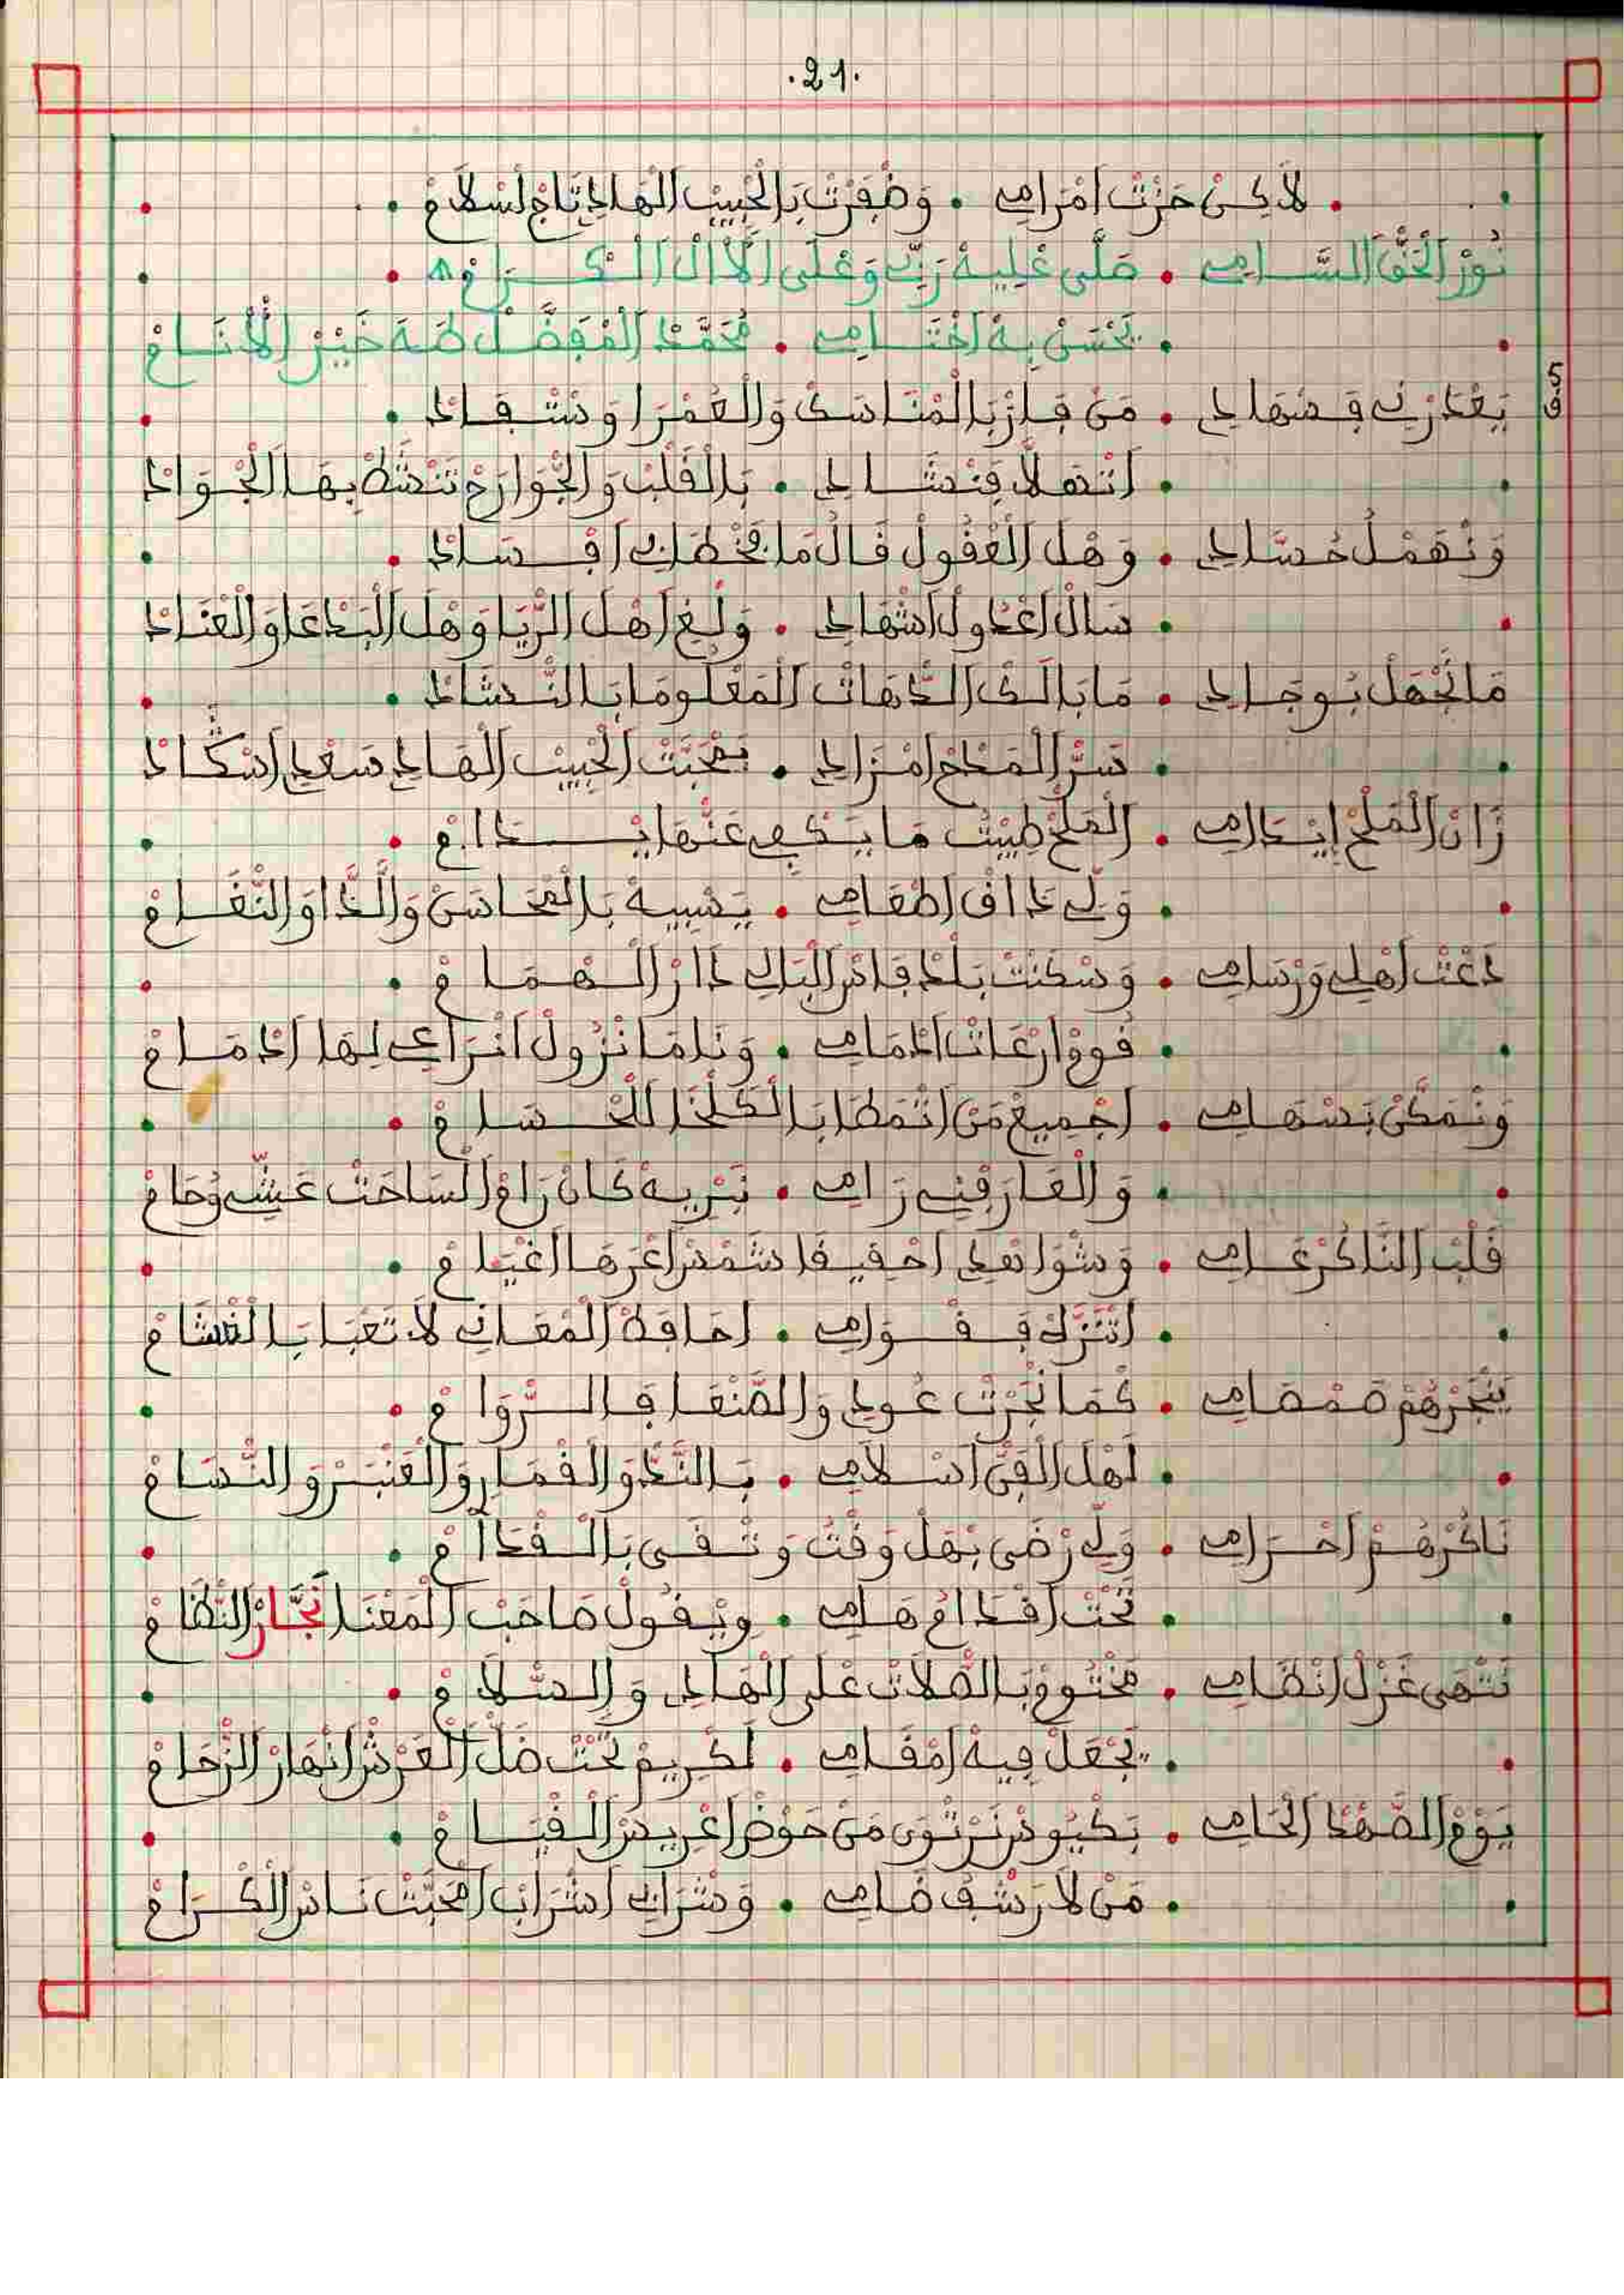 .21.
لَاكِنْ حَزْتْ اَمْرَامِي • وَظْفَرْتْ بَالْحْبِيبْ الْهَادِي تَاجْ لَسْلَامْ •
نُورْ الْحَقّْ السَّامِي • صَلَّى عْلِيهْ رَبِّي وَعْلَى الْاَالْ الْكْرَامْ
• يَحْسَنْ بِهْ اَخْتَامِي • مُحَمَّدْ الْمْفَضَّلْ طَهَ خَيْرْ الْأَنَامْ
ق.5
يَعْدَرْنِي فِمْهَادِي • مَنْ فَازْ بَالْمْنَاسَكْ وَالْعَمْرَا وَسْتْفَادْ •
• اَنْصَلَّا فِنْشَادِي • بَالْقَلْبْ وَالْجْوَارَحْ تَنْشَطْ بِهَا الْجْوَادْ
وَنْهَمْلْ حُسَّادِي • وَهْلْ الْعْقُولْ قَالْ مَا يَخْطَانِي افْسَادْ •
• سَالْ اَعْدُولْ اَشْهَادِي • وَلْغِ اَهْلْ الرّْيَا وَهْلْ الْبَدْعَا وَالْعْنَادْ
مَا نَجْهَلْ بُوجَادِي • مَا بَالَكْ الدّْهَاتْ الْمَعْلُومَا بَالنّْشَادْ •
• سَرّْ الْمَدْحْ اَمْزَادِي • بَمْحَبَّتْ الْحْبِيبْ الْهَادِي سَعْدِي اَسْكَادْ
زَانْ الْمَلْحْ اِيدَامِي • الْمَلْحْ طِيبْتْ مَا يَسْكَفِي عَنْهَا يْدَامْ •
• وَلِّي دَاقْ اَطْعَامِي • يَسْبِيهْ بَالْمْحَاسَنْ وَالْدَّا وَالنّْغَامْ
دَعْتْ اَهْلِي وَرْسَامِي • وَسْكَنْتْ بَلْدْ فَاسْ الْبَالِي دَارْ الْهْمَامْ •
• فُوقْ اَرْعَاتْ اَدْمَامِي • وَنَا مَا نْزُولْ اَنْرَاعِي لِهَا اَدْمَامْ
وَنْمَكَّنْ بَسْهَامِي • اَجْمِيعْ مَنْ اَتْمَطَا بَالْكَلْخَا لَلْخْسَامْ •
• وَالْعَارَفْنِي رَامِي • نَبْرِيهْ كَانْ رَامْ السَاحَتْ عَشِّي وُحَامْ
قَلْبْ النَّاكَرْ عَامِي • وَشْوَاهْدِي اَحْقِيقَا شَمْسْ اَعْرَهَا اَغْيَامْ •
• اَتْنَزَّكْ فَقْوَامِي • اَحَافَظْ الْمْعَانِي لَا تَعْبَا بَالْغْشَامْ
يَنْجَرْهُمْ صَمْصَامِي • كْمَا نْجَرْتْ عُودِي وَالصَّنْعَا فَالرّْوَامْ •
• لَهْلْ الْفَنّْ اَسْلَامِي • بَالنَّدّْ وَالْقْمَارِي وَالْعَنْبَرْ وَالنّْسَامْ
نَاكَرْهُمْ اَحْرَامِي • وَلِّي رْضَى بْهَلْ وَقْتُ وَتْقَى بَالْقْدَامْ •
• تَحْتْ اَقْدَامْ هَامِي • وِيْقُولْ صَاحَبْ الْمَعْنَا نَجَّارْ النّْظَامْ
نَتْهَى غَزْلْ اَنْظَامِي • مَخْتُومْ بَالصّْلَاتْ عْلَى الْهَادِي وَالسّْلَامْ •
• يَجْعَلْ فِيهْ اَمْقَامِي • لَكْرِيمْ تَحْتْ ظَلّْ الْعَرْشْ اَنْهَارْ الزّْحَامْ
يَوْمْ الصَّهْدْ الْحَامِي • بَكْيُوسْ نَرْتْوَى مَنْ حَوْضْ اَعْرِيسْ الْقْيَامْ •
• مَنْ لَا رَشْفُ ضَامِي • وَشْرَابِي اَشْرَابْ اَمْحَبَّتْ نَاسْ الْكْرَامْ